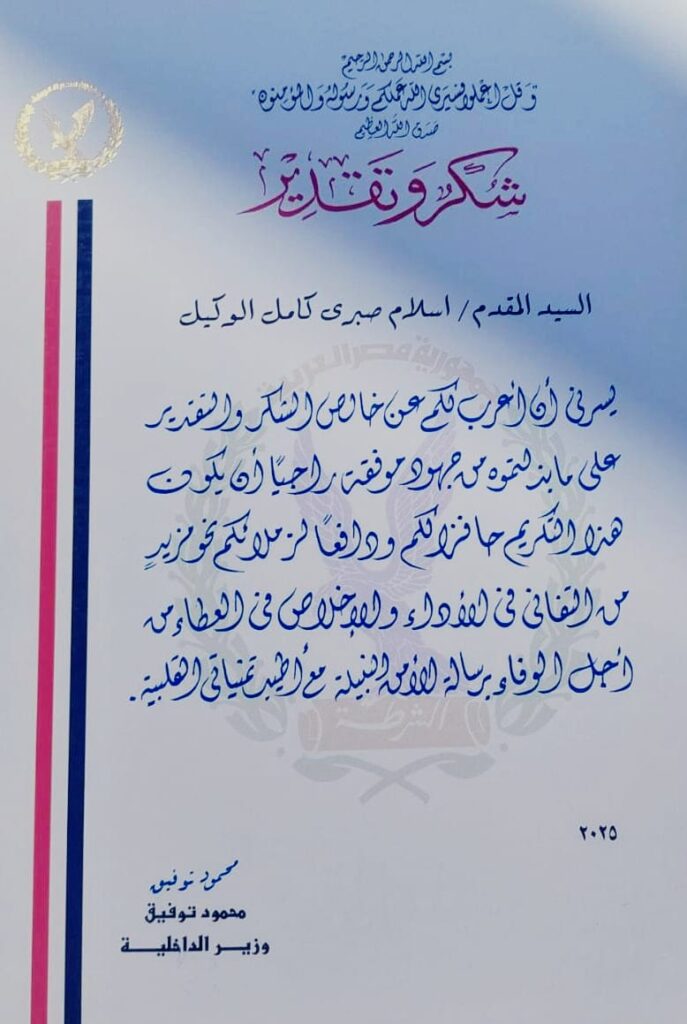 بسم الله الرحمن الرحيم
وَقُل اعْمَلُوا فَسَيَرَى اللهُ عَمَلَكُمْ وَرَسُولُهُ وَالمُؤمِنُونَ
صَدَقَ اللهُ العَظِيم
شُكر وَتَقدِير
السيد المقدم / اسلام صبرى كامل الوكيل
يسرنى أن أعرب لكم عن خالص الشكر والتقدير
على ما بذلتموه من جهود موفقة راجيًا أن يكون
هذا التكريم حافزا لكم ودافعًا لزملائكم نحو مزيدٍ
من التفانى فى الأداء والإخلاص فى العطاء من
أجل الوفاء برسالة الأمن النبيلة مع أطيب تمنياتى القلبية .
جمهورية مصر العربية
الشرطة
٢٠٢٥
محمود توفيق
محمود توفيق
وزير الداخلية